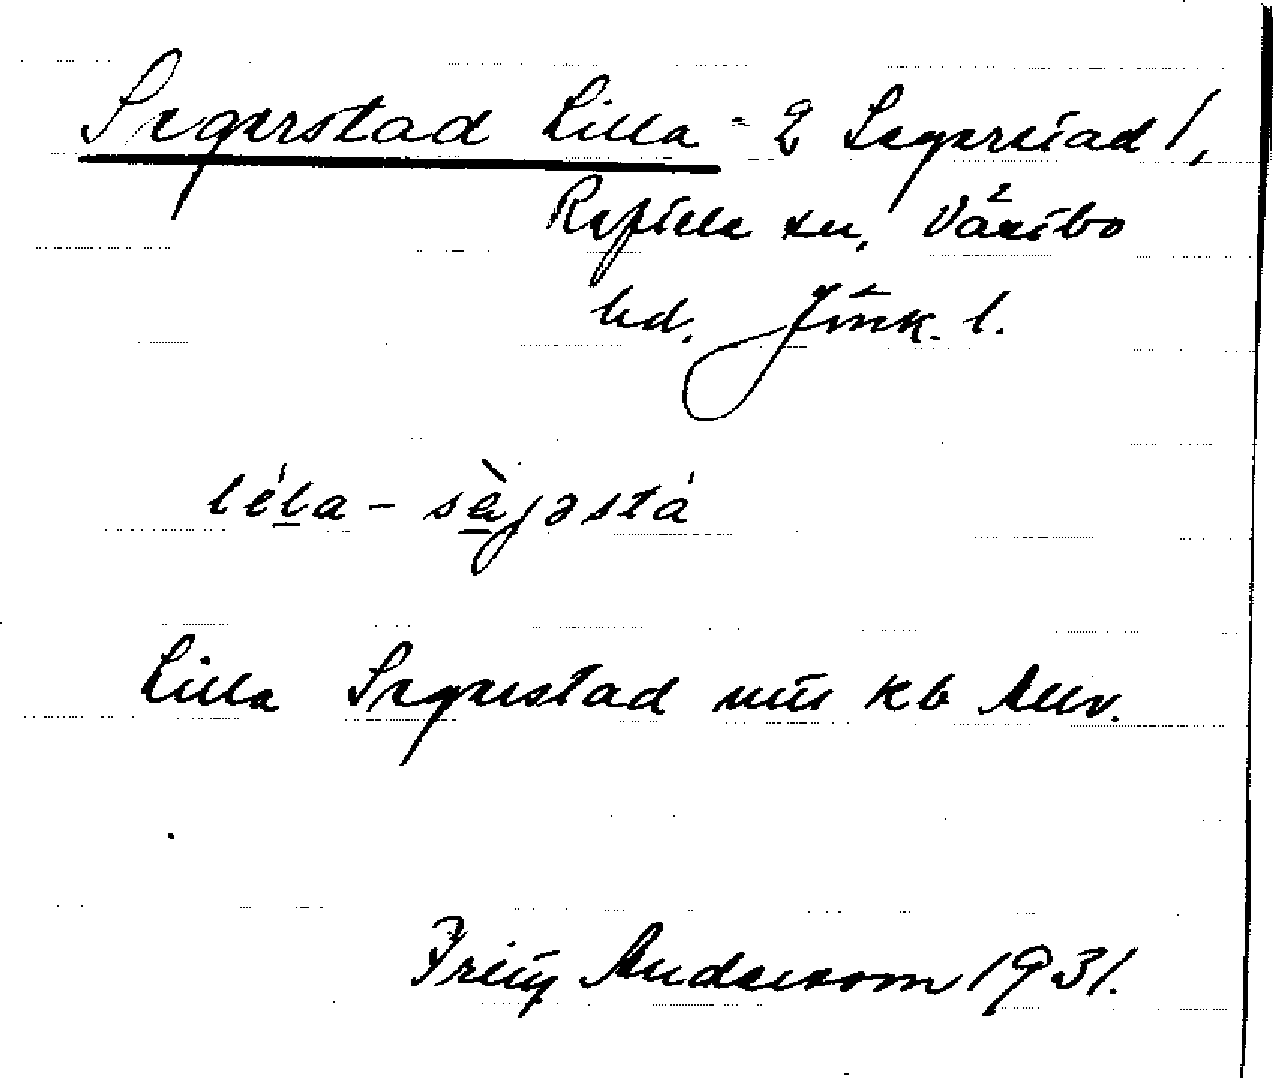 Segerstad Lilla = 2 Segerstad 1,
Reftele sn, Västbo
hd. Jönk. l.
lé̱la - sä̱̀jəstá
Lilla Segerstad utt kb Allv.
Fritz Anderson 1931.